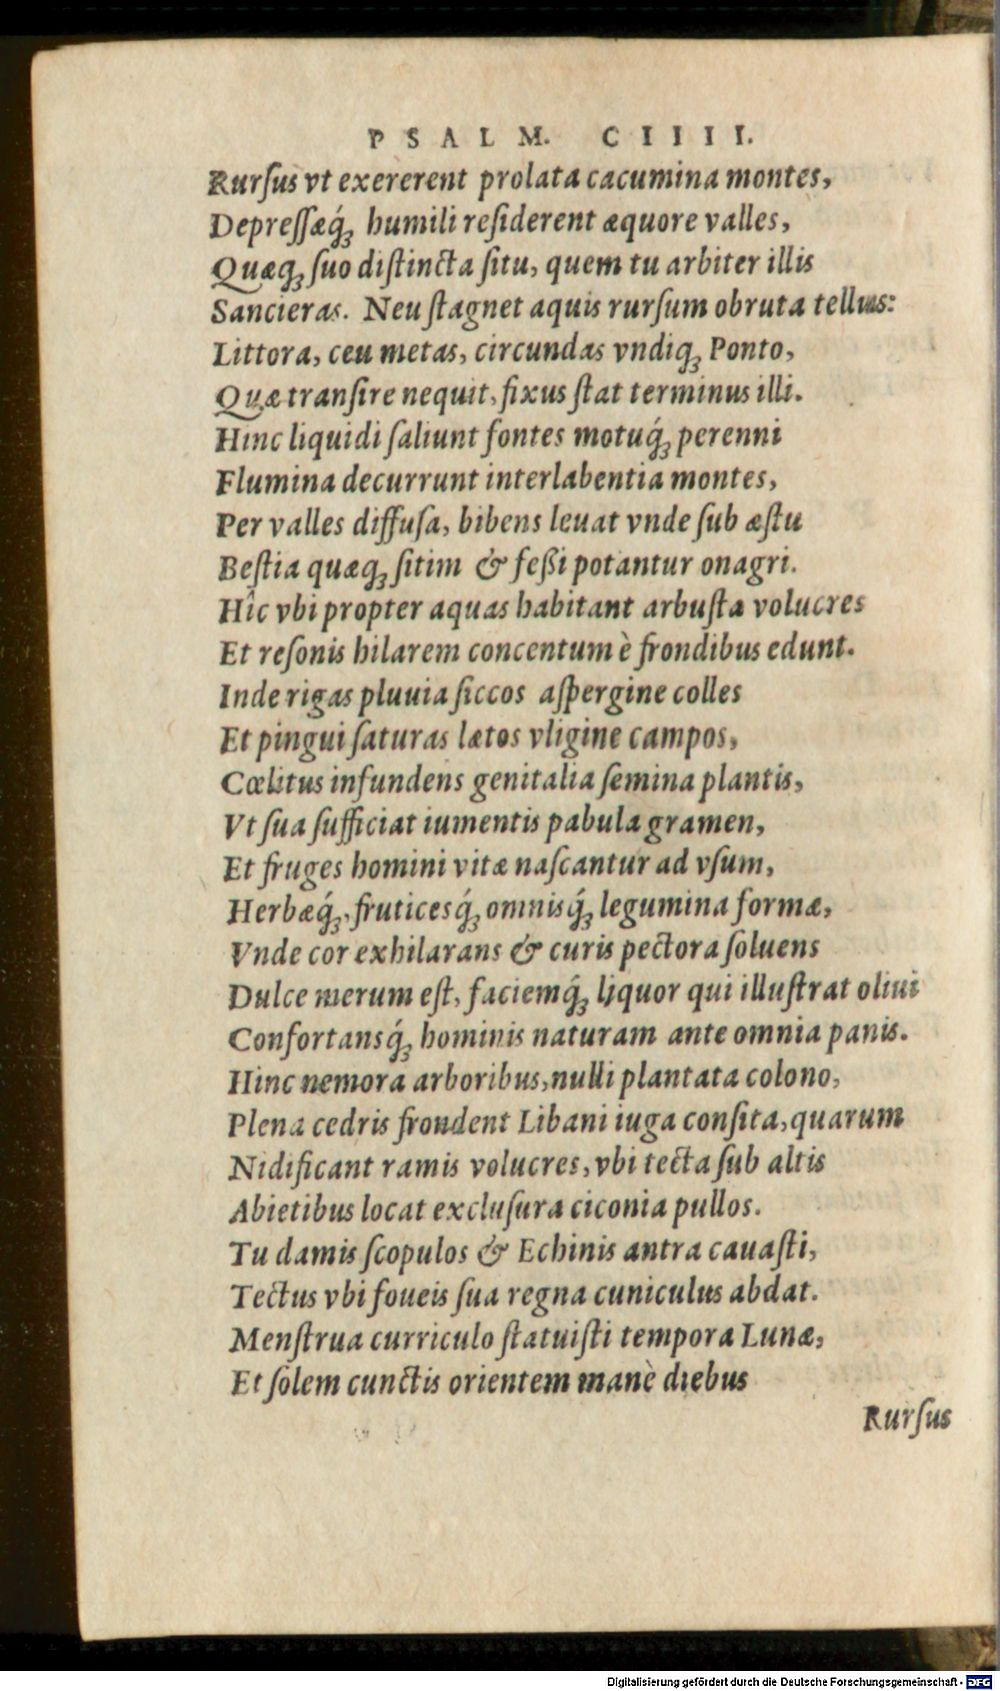 PSALM. CIIII.
Rurſus vt exererent prolata cacumina montes,
Depreſſæq́; humili reſiderent æquore valles,
Quæq; ſuo diſtincta ſitu, quem tu arbiter illis
Sancieras. Neu ſtagnet aquis rurſum obruta tellus:
Littora, ceu metas, circundas vndiq; Ponto,
Quæ tranſire nequit, fixus ſtat terminus illi.
Hinc liquidi ſaliunt fontes motuq́; perenni
Flumina decurrunt interlabentia montes,
Per valles diffuſa, bibens leuat vnde ſub æſtu
Beſtia quæq; ſitim & feßi potantur onagri.
Hîc vbi propter aquas habitant arbuſta volucres
Et reſonis hilarem concentum è frondibus edunt.
Inde rigas pluuia ſiccos aſpergine colles
Et pingui ſaturas lætos vligine campos,
Cœlitus infundens genitalia ſemina plantis,
Vt ſua ſufficiat iumentis pabula gramen,
Et fruges homini vitæ naſcantur ad vſum,
Herbæq́;, fruticesq́; omnisq́; legumina formæ,
Vnde cor exhilarans & curis pectora ſoluens
Dulce merum eſt, faciemq́; liquor qui illuſtrat oliui
Confortansq́; hominis naturam ante omnia panis.
Hinc nemora arboribus, nulli plantata colono,
Plena cedris frondent Libani iuga conſita, quarum
Nidificant ramis volucres, vbi tecta ſub altis
Abietibus locat excluſura ciconia pullos.
Tu damis ſcopulos & Echinis antra cauaſti,
Tectus vbi foueis ſua regna cuniculus abdat.
Menſtrua curriculo ſtatuiſti tempora Lunæ,
Et ſolem cunctis orientem manè diebus
Rurſus
Digitalisierung gefördert durch die Deutsche Forschungsgemeinschaft - DFG